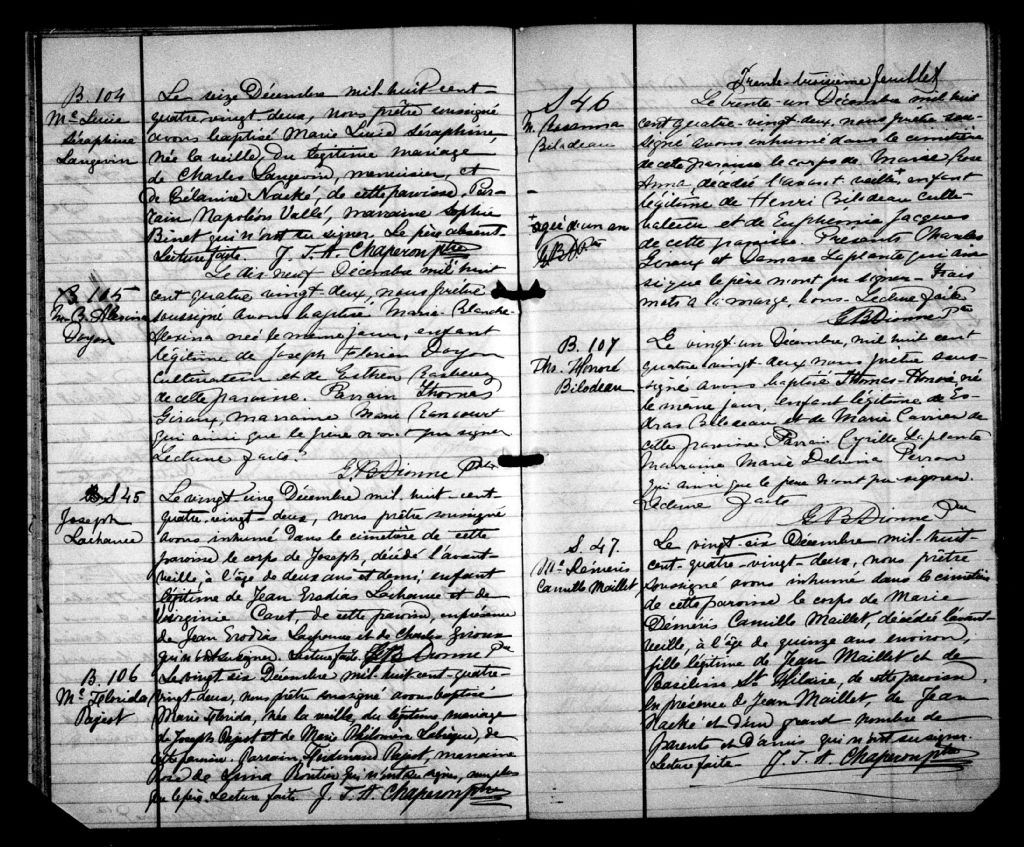 B. 104
Me Luise
Séraphine
Langevin
Le seize Décembre mil huit cent
quatre vingt deux, nous prêtre soussigné
avons baptisé Marie Luise Séraphine,
née la veille, du légitime mariage
de Charles Langevin, menuisier, et
de Célanire Nacké, de cette paroisse. Par-
rain Napoléon Vallé, marraine Sophie
Binet qui n'ont su signer. Le père absent.
Lecture faite. J. T. A. Chaperon ptre
B 105
M. B. Alexina
Doyon
Le dix neuf Décembre mil huit
cent quatre vingt deux, nous prêtre
soussigné avons baptisé Marie Blanche
Alexina née le même jour, enfant
légitime de Joseph Florian Doyon
Cultivateur et de Esther
de cette paroisse. Parrain Thomas
Giroux, marraine Marie Rancourt
qui ainsi que le père n'ont pu signer
Lecture faite.
G. B. Dionne Ptre
S 45
Joseph
Lachance
Le vingt cinq Décembre mil-huit-cent-
quatre-vingt-deux, nous prêtre soussigné
avons inhumé dans le cimetière de cette
paroisse le corps de Joseph, décédé l'avant-
veille, à l'âge de deux ans et demi, enfant
légitime de Jean Erodias Lachance et de
Virginie Caret de cette paroisse, en présence
de Jean Erodias Lachance et de Charles Giroux
qui n'ont su signer. Lecture faite. G B Dionne Ptre
B. 106
Me Florida
Pajot
Le vingt six Décembre mil-huit-cent-quatre-
vingt-deux, nous prêtre soussigné avons baptisé
Marie Florida, née la veille, du légitime mariage
de Joseph Pajot et de Marie Philomène Labrique, de
cette paroisse. Parrain Ferdinand Pajot, marraine
Rose de Lima Routier qui n'ont su signer, non plus
que le père. Lecture faite. J. T. A. Chaperon ptre
Trente-troisième feuillet
S 46
M. Rosanna
Bilodeau
Le trente-un Décembre mil huit
cent quatre-vingt-deux nous prêtre sous-
signé avons inhumé dans le cimetière
de cette paroisse le corps de Marie Rose
Anna décédée l'avant veille+, enfant
légitime de Henri Bilodeau culti-
vateur et de Euphemie Jacques
de cette paroisse. Présents Charles
Giroux et Damase Laplante qui ain-
si que le père n'ont pu signer. Trois
mots à la marge, bons. Lecture faite
G B Dionne Ptre
+ agée d'un an
G B D Ptre
B. 107
Ths. Honoré
Bilodeau
Le vingt-un Décembre, mil huit cent
quatre vingt-deux nous prêtre sous-
signé avons baptisé Thomas-Honoré, né
le même jour, enfant légitime de Es-
dras Bilodeau et de Marie Carrier de
cette paroisse. Parrain Cyrille Laplante
Marraine Marie Delvina
qui ainsi que le père n'ont pu signer.
Lecture faite
G B Dionne Ptre
S. 47.
Me Démeris
Camille Maillet
Le vingt-six Décembre mil-huit-
cent-quatre-vingt-deux, nous prêtre
soussigné avons inhumé dans le cimetière
de cette paroisse le corps de Marie
Démeris Camille Maillet, décédée l'avant-
veille, à l'âge de quinze ans environ,
fille légitime de Jean Maillet et de
Basilice St. Hilaire, de cette paroisse,
en présence de Jean Maillet, de Jean
Nacké et d'un grand nombre de
parents et d'amis qui n'ont su signer.
Lecture faite J. T. A. Chaperon ptre